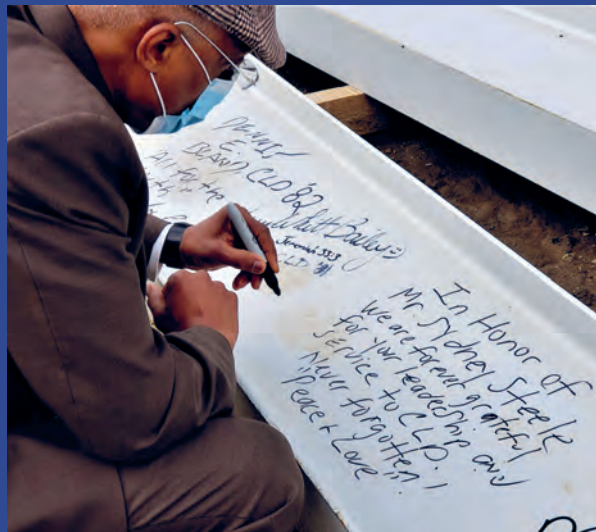 DENNIS
E.
BLAND, CLD '82
All for the
Bailey
Jeremiah 33:3
CLD
In Honor of
Mr. Sydney Steele
We are forever grateful
for your leadership and
service to CLD.
Never forgotten!
"Peace & Love"